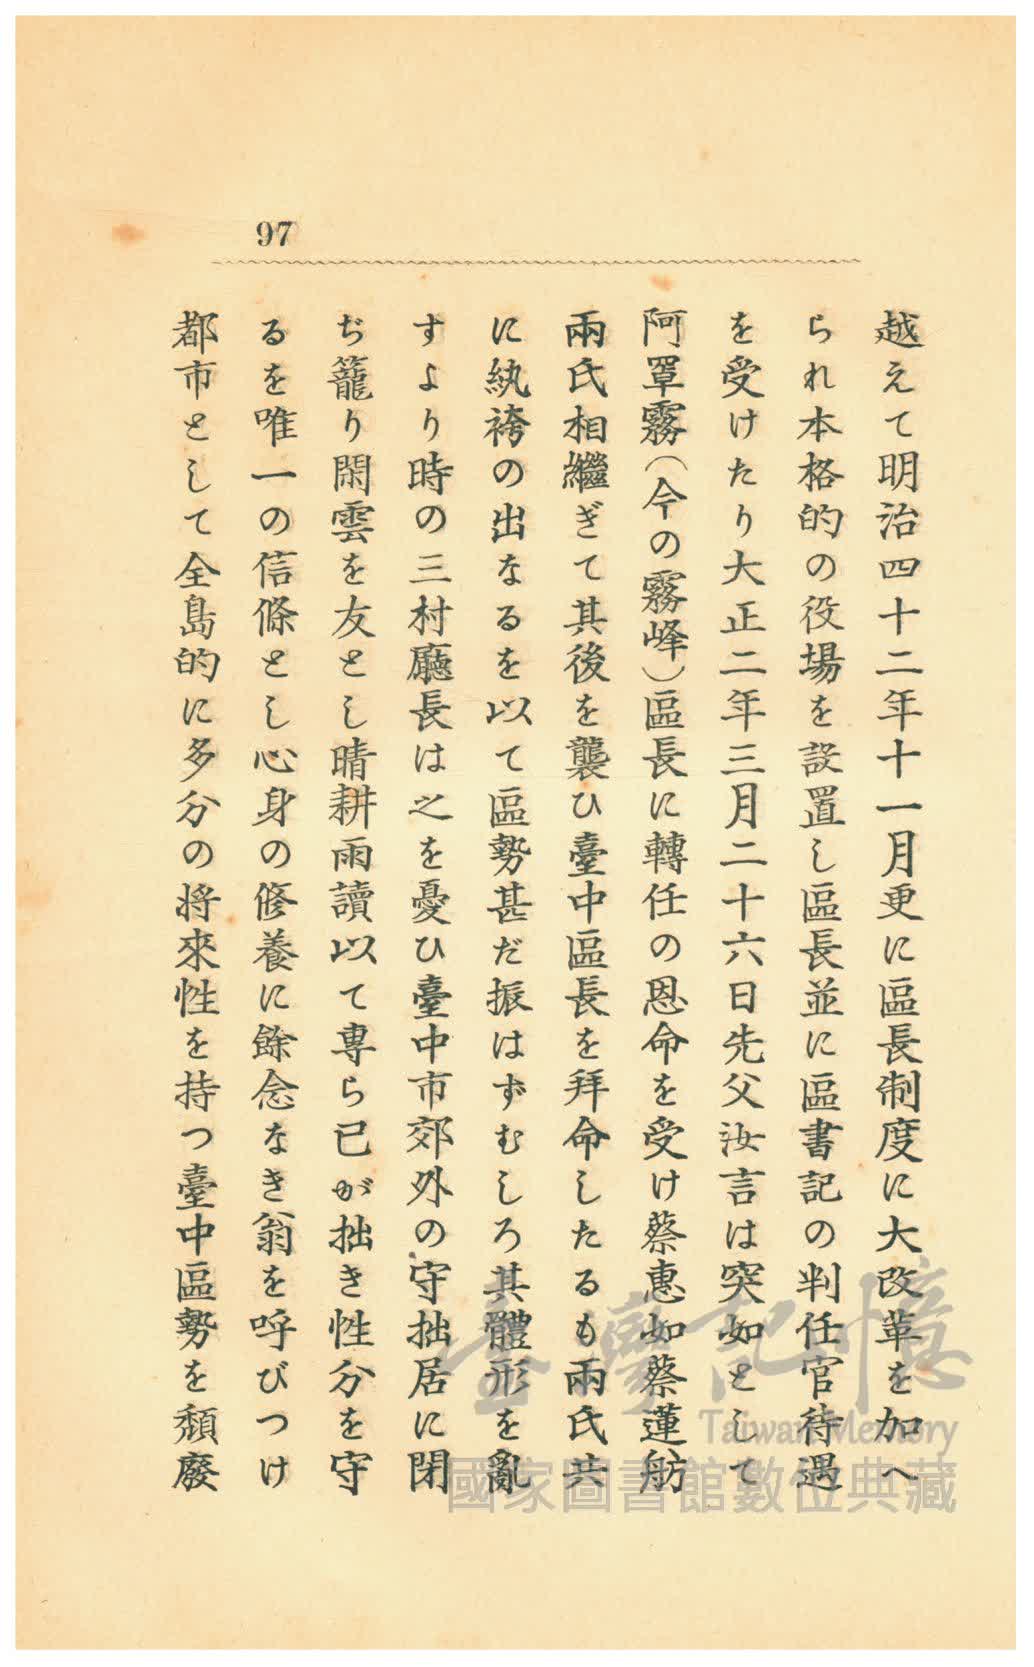 97
越えて明治四十二年十一月更に區長制度に大改革を加へ
られ本格的の役場を設置し區長並に區書記の判任官待遇
を受けたり大正二年三月二十六日先父汝言は突如として
阿罩霧(今の霧峰)區長に轉任の恩命を受け蔡惠如蔡蓮舫
兩氏相繼ぎて其後を襲ひ臺中區長を拜命したるも兩氏共
に紈袴の出なるを以て區勢甚だ振はずむしろ其體形を亂
すより時の三村廳長は之を憂ひ臺中市郊外の守拙居に閉
ぢ籠り閑雲を友とし晴耕雨讀以て専ら已が拙き性分を守
るを唯一の信條とし心身の修養に餘念なき翁を呼びつけ
都市として全島的に多分の将來性を持つ臺中區勢を頽廢
臺灣記憶
Taiwan Memory
國家圖書館數位典藏